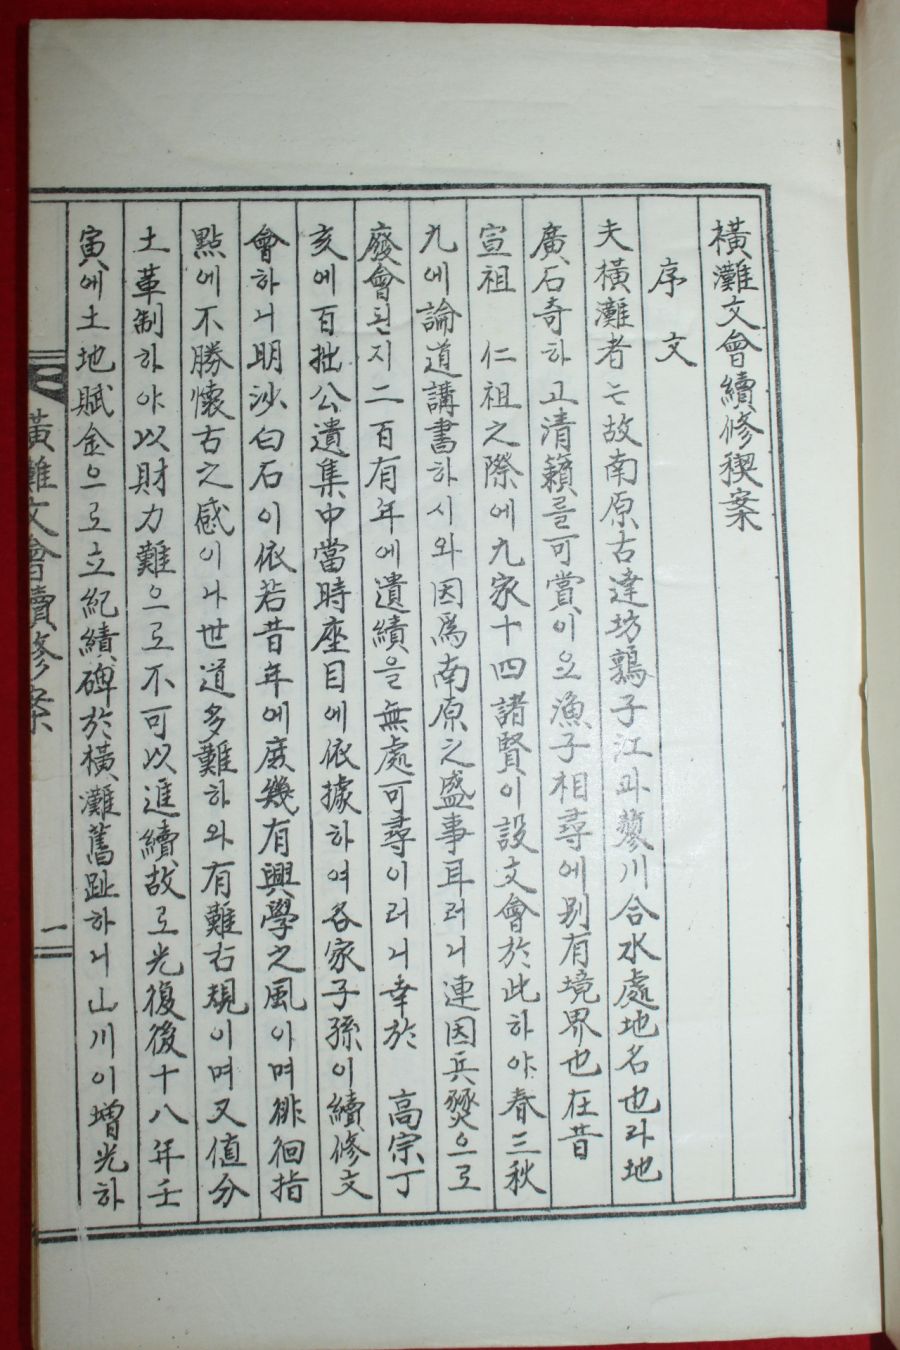 橫灘文會續修稧案
序文
夫橫灘者는故南原古達坊鶉子江과蓼川合水處地名也라地
廣石奇하고淸籟를可賞이오漁子相尋에別有境界也在昔
宣祖 仁祖之際에九家十四諸賢이設文會於此하야春三秋
九에論道講書하시와因爲南原之盛事耳러니連因兵燹으로
廢會된지二百有年에遺績을無處可尋이러니幸於 高宗丁
亥에百拙公遺集中當時座目에依據하여各家子孫이續修文
會하니明沙白石이依若昔年에庶幾有興學之風이며徘徊指
點에不勝懷古之感이나世道多難하와有難右規이며又値分
土革制하야以財力難으로不可以進續故로光復後十八年壬
寅에土地賦金으로立紀績碑於橫灘舊趾하니山川이增光하
橫灘文會續修案
一